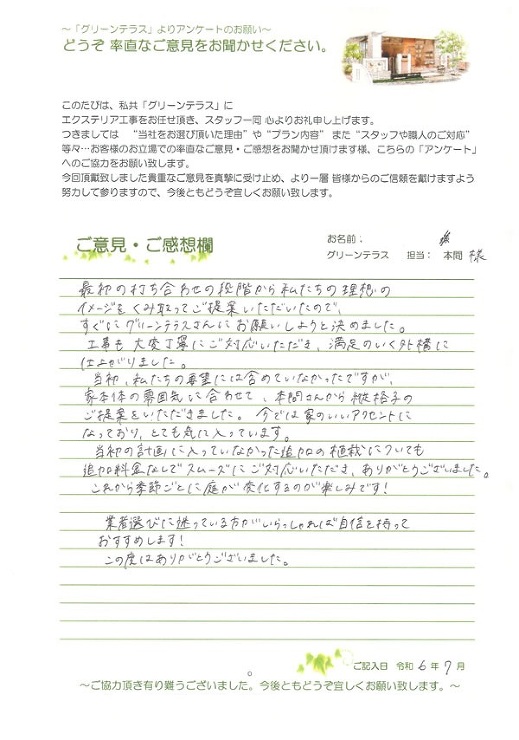 ～「グリーンテラス」よりアンケートのお願い～
どうぞ 率直なご意見をお聞かせください。
このたびは、私共「グリーンテラス」に
エクステリア工事をお任せ頂き、スタッフ一同 心よりお礼申し上げます。
つきましては “当社をお選び頂いた理由”や“プラン内容” また“スタッフや職人のご対応”
等々…お客様のお立場での率直なご意見・ご感想をお聞かせ頂けます様、こちらの「アンケート」
へのご協力をお願い致します。
今回頂戴致しました貴重なご意見を真摯に受け止め、より一層 皆様からのご信頼を戴けますよう
努力して参りますので、今後ともどうぞ宜しくお願い致します。
お名前：
ご意見・ご感想欄
グリーンテラス 担当： 本間 様
最初の打ち合わせの段階から私たちの理想の
イメージをくみ取ってご提案いただいたので、
すぐにグリーンテラスさんにお願いしようと決めました。
工事も大変丁寧にご対応いただき、満足のいく外構に
仕上がりました。
当初、私たちの要望には含めていなかったですが、
家本体の雰囲気に合わせて、本間さんから縦格子の
ご提案をいただきました。今では家のいいアクセントに
なっており、とても気に入っています。
当初の計画に入っていなかった追加の植栽についても
追加料金なしでスムーズにご対応いただき、ありがとうございました。
これから季節ごとに庭が変化するのが楽しみです！
業者選びに迷っている方がいらっしゃれば自信を持って
おすすめします！
この度はありがとうございました。
ご記入日 令和 6 年 7 月
～ご協力頂き有り難うございました。今後ともどうぞ宜しくお願い致します。～